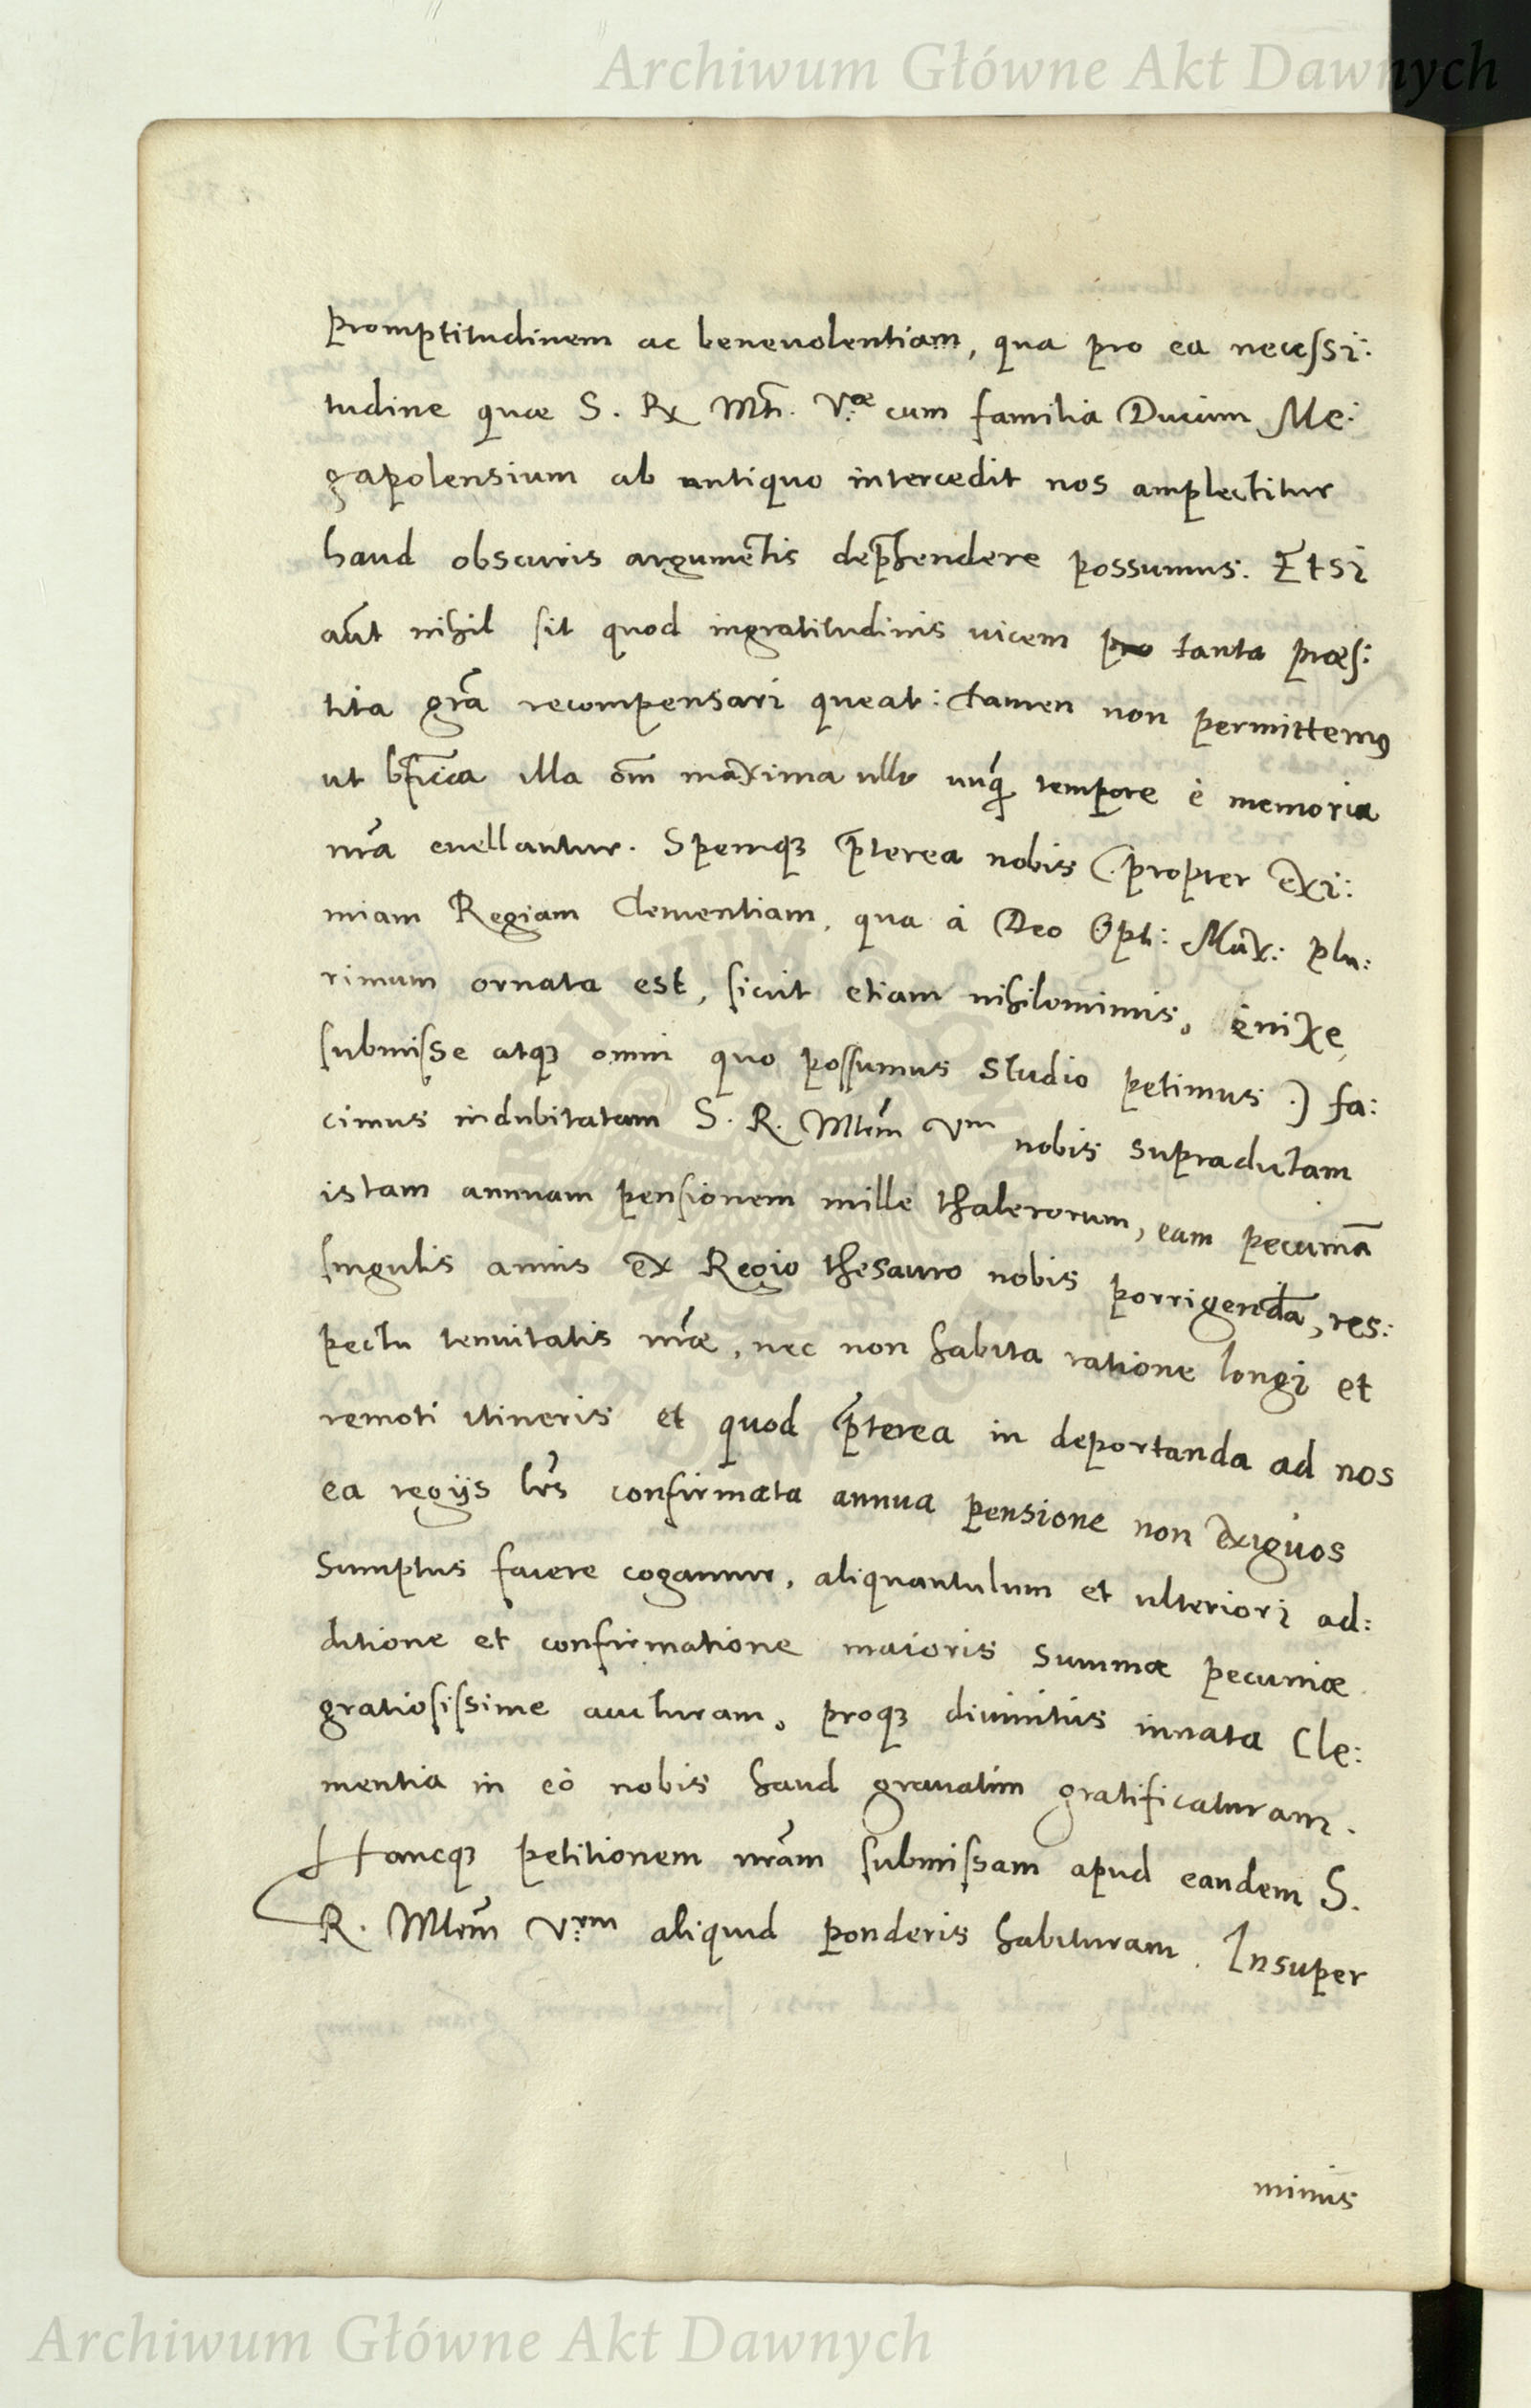 Archiwum Główne Akt Dawnych
promptitudinem ac beneuolentiam, qua pro ea necessi:
tudine quæ S. Rx Mti. V.æ cum familia Ducum Me:
gapolensium ab antiquo intercedit nos amplectitur
haud obscuris argumētis dep̄hendere possumus. Etsi
aūt nihil sit quod ingratitudinis uicem pro tanta præs:
tita grā recompensari queat: tamen non permittemꝰ
ut bn̄ficia illa om̄ maxima ullo unq̄ tempore è memoria
nr̄a euellantur. Spemqꝫ p̄terea nobis (. propter exi:
miam Regiam Clementiam, qua à Deo Opt: Max: plu:
rimum ornata est, sicut etiam nihilominus, enixe,
submisse atqꝫ omni quo possumus studio petimus .) fa:
cimus indubitatam S. R. Mtem̄ Vm nobis supradictam
istam annuam pensionem mille thalerorum, eam pecuniā
singulis annis ex Regio thesauro nobis porrigendā, res:
pectu tenuitatis nr̄æ, nec non habita ratione longi et
remoti itineris et quod p̄terea in deportanda ad nos
ea regijs lr̄is confirmata annua pensione non exiguos
sumptus facere cogamur, aliquantulum et ulteriori ad:
ditione et confirmatione maioris summæ pecuniæ
gratiosissime aucturam, proqꝫ diuinitus innata Cle:
mentia in eò nobis haud grauatim gratificaturam.
Hancqꝫ petitionem nr̄am submissam apud eandem S.
R. Mtem̄ V.rm aliquid ponderis habituram. Insuper
minus
Archiwum Główne Akt Dawnych